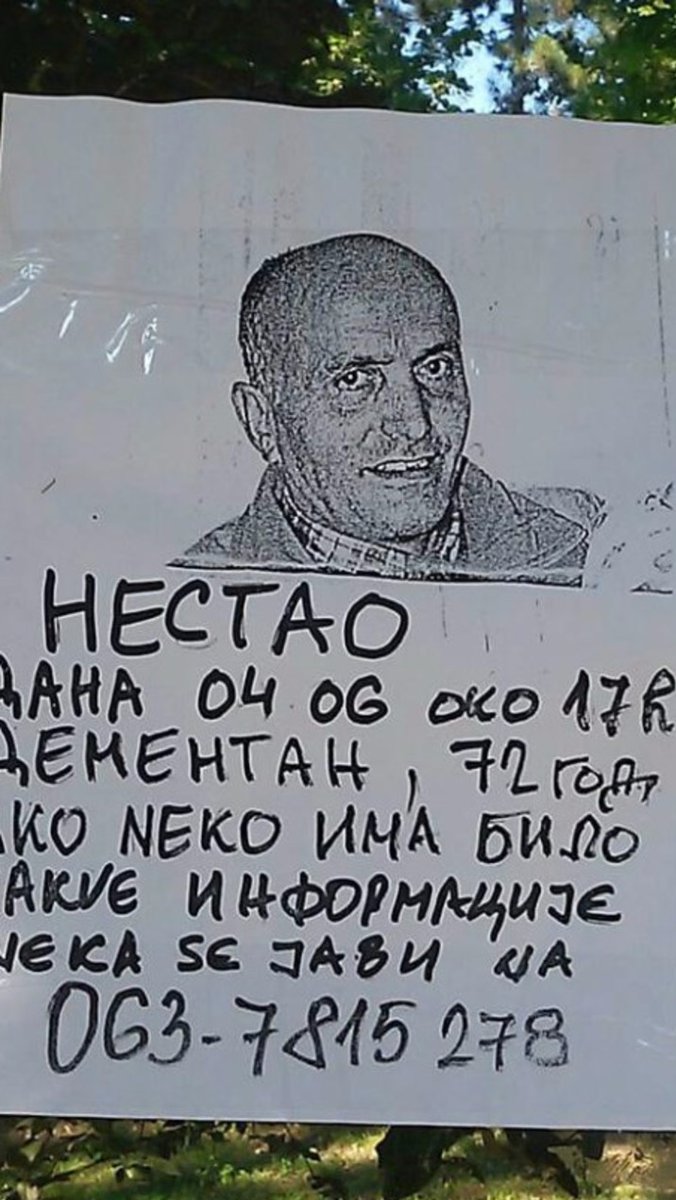 НЕСТАО
ДАНА 04 06 око 17h
ДЕМЕНТАН, 72 год,
АКО NЕКО ИМА БИЛО
КАКVE ИНФОРМАЦИЈЕ
NEKA SE ЈАВИ NA
063-7815 278